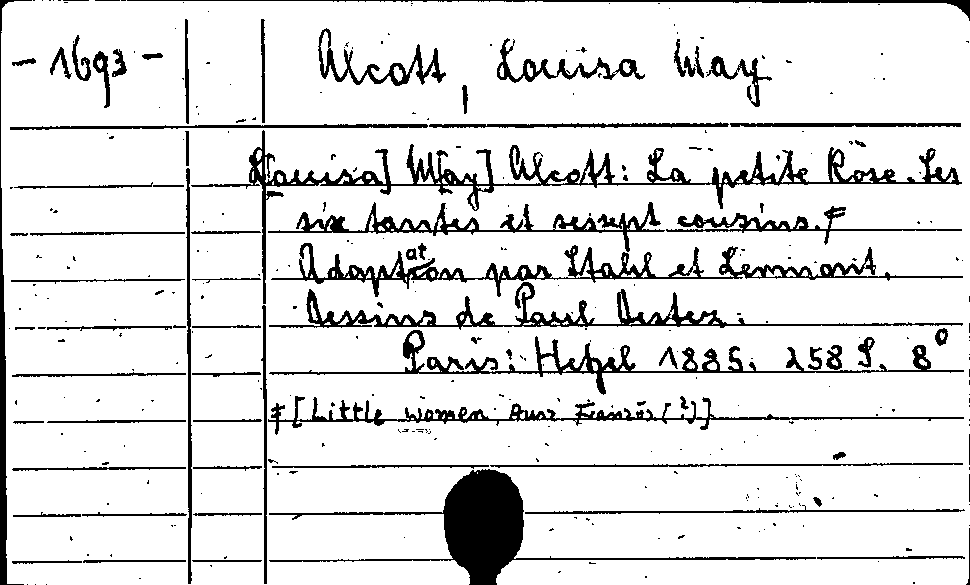 - 1693 -
Alcott, Louisa May
L[ouisa] M[ay] Alcott: La petite Rose. Ses
six tantes et sessept cousins. ≠
Adaptation par Stahl et Lermont.
Dessins de Paul Destez.
Paris: Hetzel 1885. 258 S. 8°
≠ [Little women, Ausz. Französ. (?)]